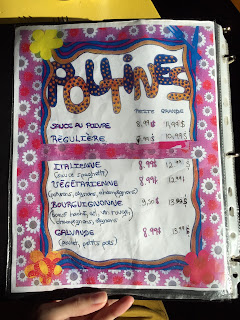 POUTINES
PETITE GRANDE
SAUCE AU POIVRE 8,99$ 11,99$
RÉGULIÈRE 10,99$
ITALIENNE 8,99$ 12,99$
(sauce spaghetti)
VÉGÉTARIENNE 8,99$ 12,99$
(poivrons, oignons, champignons)
BOURGUIGNONNE 9,50$ 13,50$
(boeuf haché, vin rouge
champignons, oignons)
GALVAUDE 8,99$ 13,99$
(poulet, petits pois)